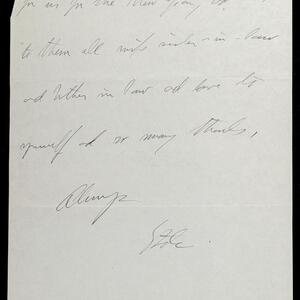 for us for the New Year
to them all with sister-in-law
and brother in law and love to
yourself and so many thanks,
Always